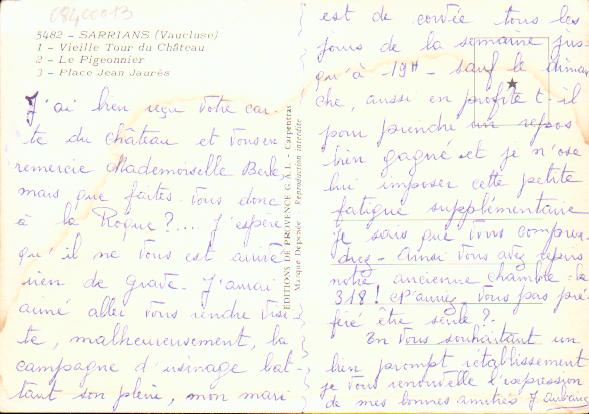 08400013
5482 - SARRIANS (Vaucluse)
1 - Vieille Tour du Château
2 - Le Pigeonnier
3 - Place Jean Jaurès
J'ai bien reçu votre car-
te du château et vous en
remercie Mademoiselle
mais que faites-vous donc
à la Roque ?... J'espère
qu'il ne vous est arrivé
rien de grave. J'aurai
aimé aller vous rendre visi-
te, malheureusement, la
campagne d'usinage bat-
tant son plein, mon mari
EDITIONS DE PROVENCE G.A.L. - Carpentras
Marque Déposée Reproduction interdite
est de corvée tous les
jours de la semaine jus-
qu'à 19H - sauf le diman
che, aussi en profite-t-il
pour prendre un repos
bien gagné et je n'ose
lui imposer cette petite
fatigue supplémentaire
Je sais que vous compren-
drez - Ainsi vous avez repris
notre ancienne chambre : la
318 ! N'auriez-vous pas pré-
féré être seule ?.
En vous souhaitant un
bien prompt rétablissement
je vous renouvelle l'expression
de mes bonnes amitiés J.